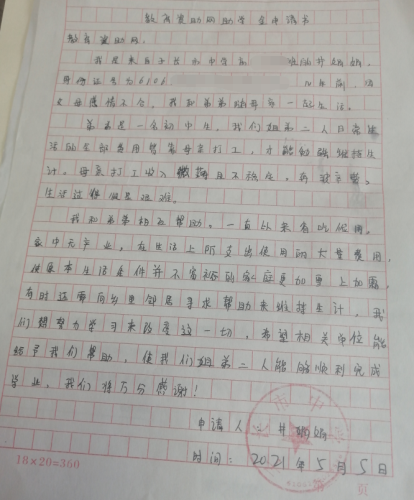 教育资助网助学金申请书
教育资助网:
我是来自子长市中学的
身份证号为6106
父母感情不合,我和弟弟跟母亲一起生活。
弟弟是一名初中生,我们姐弟二人日常生
活的全部费用皆靠母亲打工,才能勉强维持生
计。母亲打工收入微薄且不稳定,
生活过得很是艰难。
我和弟弟相互帮助。一直以来省吃俭用。
家中无产业,在生活上所支出使用的大量费用,
使原本生活条件并不富裕的家庭更加雪上加霜,
有时还需向左右邻居寻求帮助来维持生计,我
们想努力学习来改变这一切,希望相关单位能
给予我们帮助,使我们姐弟二人能够顺利完成
学业,我们将万分感谢!
申请人:
时间:2021年5月5日
18×20=360
页